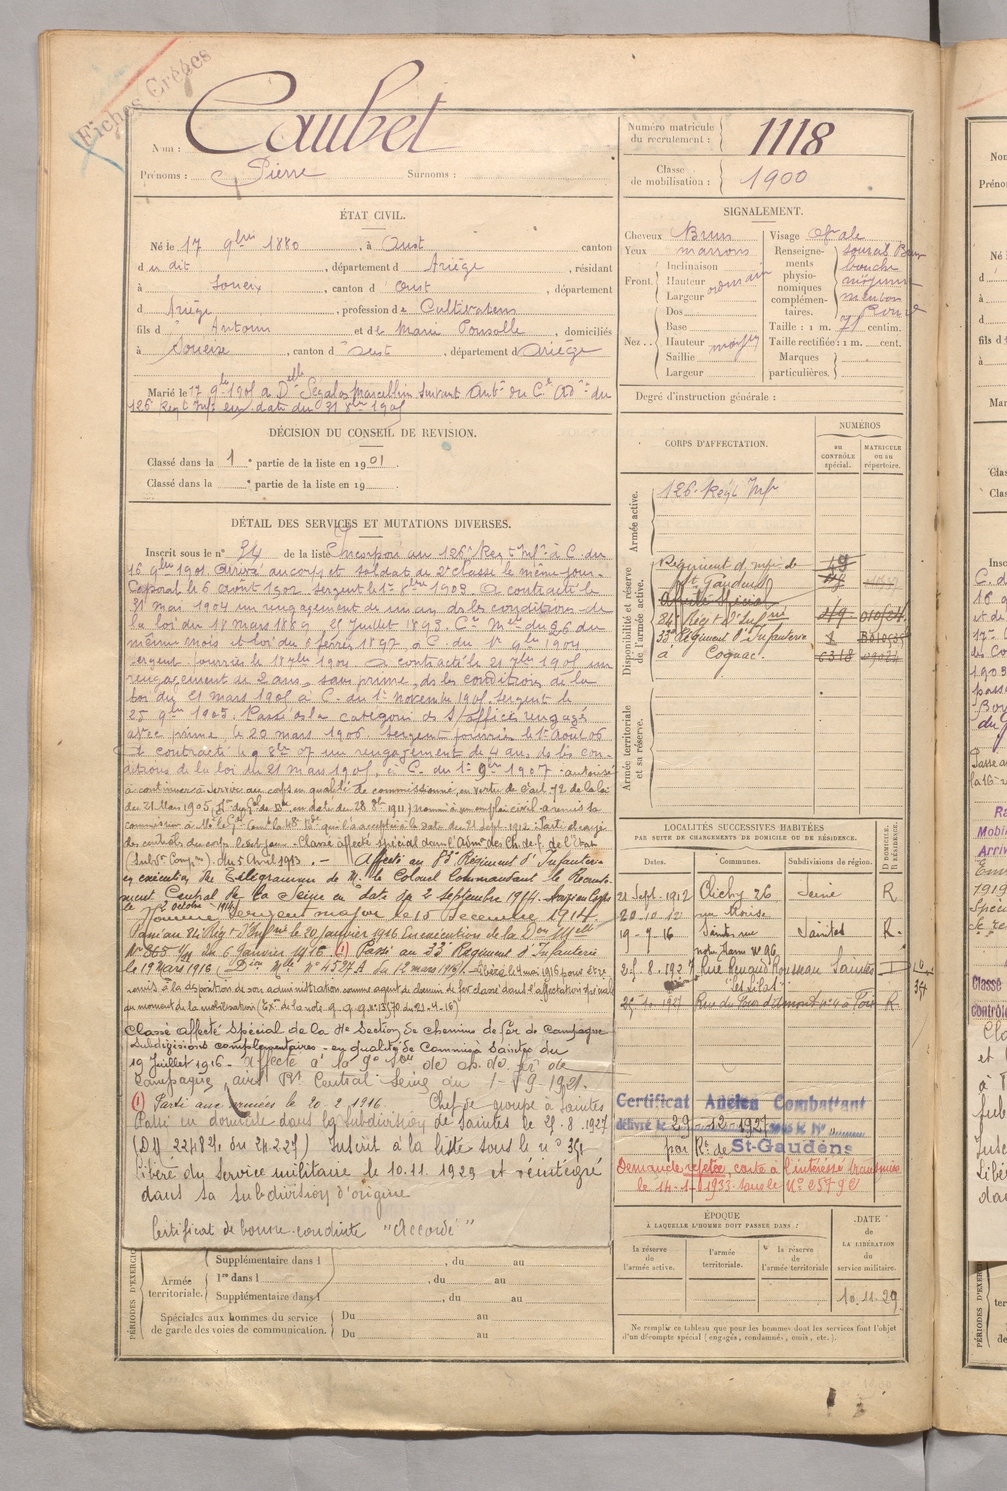 Fiches Créées
Nom : Caubet
Prénoms : Pierre Surnoms :
Numéro matricule du recrutement : 1118
Classe de mobilisation : 1900
ÉTAT CIVIL.
Né le 17 9bre 1880, à Oust canton
du dit, département d Ariège, résidant
à Soueix, canton d Oust, département
d Ariège, profession de Cultivateur
fils d Antoine et de Marie Ponsolle, domiciliés
à Soueix, canton d Oust, département d Ariège
Marié le 17 9bre 1905 à Delle Ségalas Marcelline suivant auton du Cl Adon du
126e Regt Infie en date du 31 8bre 1905
SIGNALEMENT.
Cheveux Bruns
Yeux marrons
Front. Inclinaison
Hauteur ordinaire
Largeur
Nez. Dos
Base
Hauteur moyen
Saillie
Largeur
Visage Ovale
Renseignements physionomiques complémentaires. sourcils Bruns
bouche
moyenne
menton
Rond
Taille : 1 m. 71 centim.
Taille rectifiée : 1 m. cent.
Marques particulières.
Degré d'instruction générale :
DÉCISION DU CONSEIL DE REVISION.
Classé dans la 1e partie de la liste en 1901.
Classé dans la e partie de la liste en 19
CORPS D'AFFECTATION.
NUMÉROS
au CONTRÔLE spécial.
MATRICULE ou au répertoire.
Armée active.
126e Regt Infie
Disponibilité et réserve de l'armée active.
Régiment d'infie de 49
St Gaudens
Affecté Spécial
24e Régt d'Infrie
33e Régiment d'Infanterie
à Cognac.
Armée territoriale et sa réserve.
DÉTAIL DES SERVICES ET MUTATIONS DIVERSES.
Inscrit sous le n° 34 de la liste Incorporé au 126e Regt Infie à C. du
16 9bre 1901 arrivé au corps et soldat de 2e classe le même jour.
Caporal le 6 août 1902. Sergent le 1er 8bre 1903. A contracté le
31 mai 1904 un engagement de un an ds les conditions de
la loi du 17 mars 1889, 25 juillet 1893. Cre Mlle du 26 du
même mois et loi du 6 février 1897 à C. du 1er 9bre 1904
sergent fourrier le 18 7bre 1904. A contracté le 21 7bre 1905 un
rengagement de 2 ans, sans prime, ds les conditions de la
loi du 21 mars 1905 à C. du 1er novembre 1905. Sergent le
25 9bre 1905. Passé ds la catégorie des s/offers rengagés
avec prime le 20 mars 1906. Sergent fourrier le 1er août 06
A contracté le 9 8bre 07 un rengagement de 4 ans ds les con-
ditions de la loi du 21 mars 1905, à C. du 1er 9bre 1907. autorisé
à continuer à servir au corps en qualité de commissionné, en vertu de l'art. 72 de la loi
du 21 Mars 1905, en date du 28 8bre 1911 nommé à un emploi civil a remis sa
commission à Mr le Gal Comt la qui l'a acceptée à la date du 21 Sept. 1912. Parti et rayé
des contrôles du corps le dit jour. Classé affecté spécial dans l'Admon des Ch. de f. de l'État
(Subs. Compre) du 5 Avril 1913. — Affecté au 83e Régiment d'Infanterie
en exécution du Télégramme de M. le Colonel Commandant le Recrute-
ment Central de la Seine en date du 2 septembre 1914. Arrivé au Corps
le 2 octobre 1914
Nommé Sergent major le 15 Décembre 1914.
Passé au 24e Régt d'Infrie le 20 Janvier 1916 En exécution de la Don Mlle
N° 865 1/11 du 6 Janvier 1916 (1) Passé au 33e Régiment d'Infanterie
le 19 mars 1916 (Dion Mlle n° 4527 A du 12 mars 1916). Libéré le 1 mai 1916 pour être
remis à la disposition de son administration comme agent de chemin de fer classé dans l'affectation spéciale
au moment de la mobilisation (Exon de la note G.Q.G. n° 13570 du 21-4-16)
Classé affecté spécial de la 4e Section de chemins de fer de Campagne
Subdivisions complémentaires - en qualité de Commis à Saintes du
19 Juillet 1916 - Affecté à la 9e Son de ch. de fer de
campagne avis Rt Central Seine du 1-9-1921.
(1) Parti aux armées le 20-2-1916. Chef de groupe à Saintes
Passé en domicile dans la subdivision de Saintes le 25.8.1927
(DD 22482, du 24.2.28) Inscrit à la liste sous le n° 351
Libéré du Service militaire le 10.11.1929 et réintégré
dans sa subdivision d'origine
Certificat de bonne conduite "Accordé"
LOCALITÉS SUCCESSIVES HABITÉES
PAR SUITE DE CHANGEMENTS DE DOMICILE OU DE RÉSIDENCE.
Dates. Communes. Subdivisions de région. D DOMICILE. R RÉSIDENCE.
21 Sept. 1912 Clichy 26 Seine R
20.10.12
19-7-16 Saintes rue Saintes R.
25.8.1927 Rue Renaud Rousseau Saintes D
"Les Lilas"
25-10-1928 R
Certificat Ancien Combattant
délivré le 29-12-1927 sous le N°
par Rt de St-Gaudens
Demande rejetée, carte à l'intéressé transmise
le 14-1-1933 sous le N° 25792
ÉPOQUE
À LAQUELLE L'HOMME DOIT PASSER DANS :
la réserve de l'armée active.
l'armée territoriale.
la réserve de l'armée territoriale
DATE DE LA LIBÉRATION du service militaire.
10.11.29
Ne remplir ce tableau que pour les hommes dont les services font l'objet
d'un décompte spécial (engagés, condamnés, omis, etc.).
PÉRIODES D'EXERCICES
Armée territoriale.
Supplémentaire dans l , du au
1re dans l , du au
Supplémentaire dans l , du au
Spéciales aux hommes du service de garde des voies de communication.
Du au
Du au